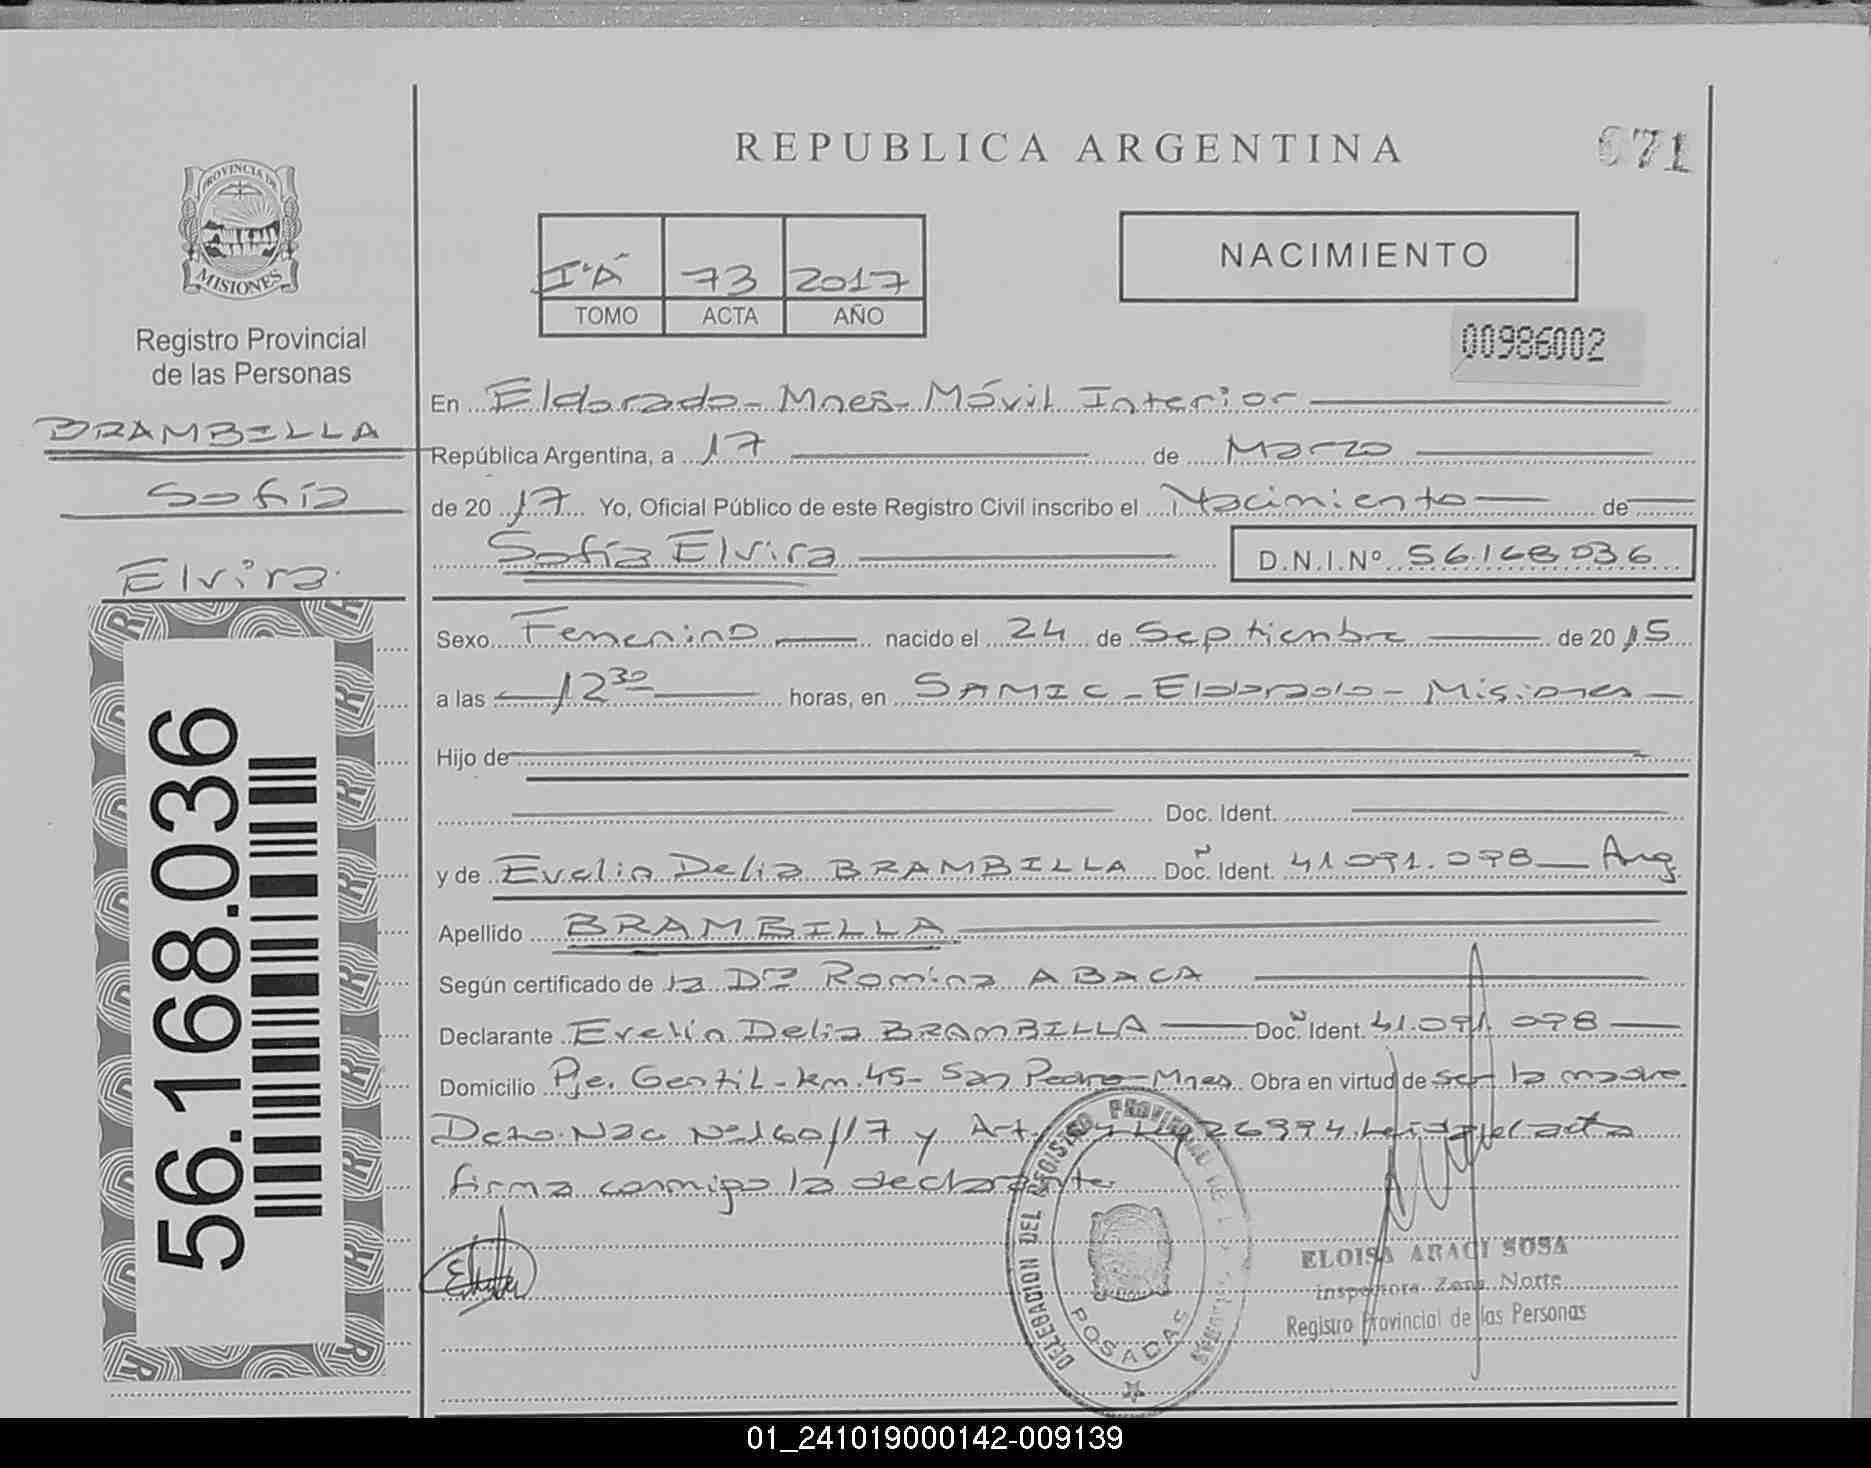 REPUBLICA ARGENTINA
671
PROVINCIA DE
MISIONES
Registro Provincial
de las Personas
BRAMBILLA
Sofía
Elvira
56.168.036
I"A" 73 2017
TOMO ACTA AÑO
NACIMIENTO
00986002
En Eldorado - Mnes - Móvil Interior
República Argentina, a 17 de Marzo
de 2017 Yo, Oficial Público de este Registro Civil inscribo el Nacimiento de
Sofía Elvira D.N.I.Nº 56.168.036
Sexo Femenino nacido el 24 de Septiembre de 2015
a las 12 30 horas, en SAMIC - Eldorado - Misiones
Hijo de
Doc. Ident.
y de Evelin Delia BRAMBILLA Doc. Ident. 41.091.098 Arg
Apellido BRAMBILLA
Según certificado de la Dra Romina ABACA
Declarante Evelín Delia BRAMBILLA Doc. Ident. 41.091.098
Domicilio Pje. Gentil - km. 45 - San Pedro - Mnes Obra en virtud de ser la madre
Dcto. Nac Nº 160/17 y Art. 26994. Leída el acta
firma conmigo la declarante
DELEGACION DEL REGISTRO PROVINCIAL DE
POSADAS
ELOISA ARACI SOSA
Inspectora Zona Norte
Registro Provincial de las Personas
01_241019000142-009139